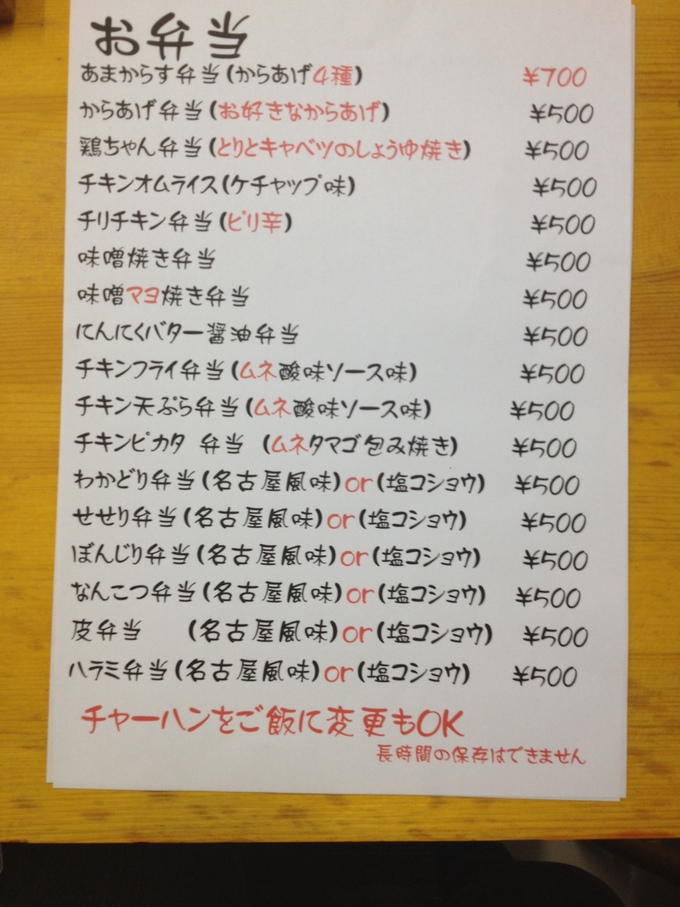 お弁当
あまからす弁当(からあげ4種) ¥700
からあげ弁当(お好きなからあげ) ¥500
鶏ちゃん弁当(とりとキャベツのしょうゆ焼き) ¥500
チキンオムライス(ケチャップ味) ¥500
チリチキン弁当(ピリ辛) ¥500
味噌焼き弁当 ¥500
味噌マヨ焼き弁当 ¥500
にんにくバター醤油弁当 ¥500
チキンフライ弁当(ムネ酸味ソース味) ¥500
チキン天ぷら弁当(ムネ酸味ソース味) ¥500
チキンピカタ 弁当 (ムネタマゴ包み焼き) ¥500
わかどり弁当(名古屋風味)or(塩コショウ) ¥500
せせり弁当(名古屋風味)or(塩コショウ) ¥500
ぼんじり弁当(名古屋風味)or(塩コショウ) ¥500
なんこつ弁当(名古屋風味)or(塩コショウ) ¥500
皮弁当 (名古屋風味)or(塩コショウ) ¥500
ハラミ弁当(名古屋風味)or(塩コショウ) ¥500
チャーハンをご飯に変更もOK
長時間の保存はできません